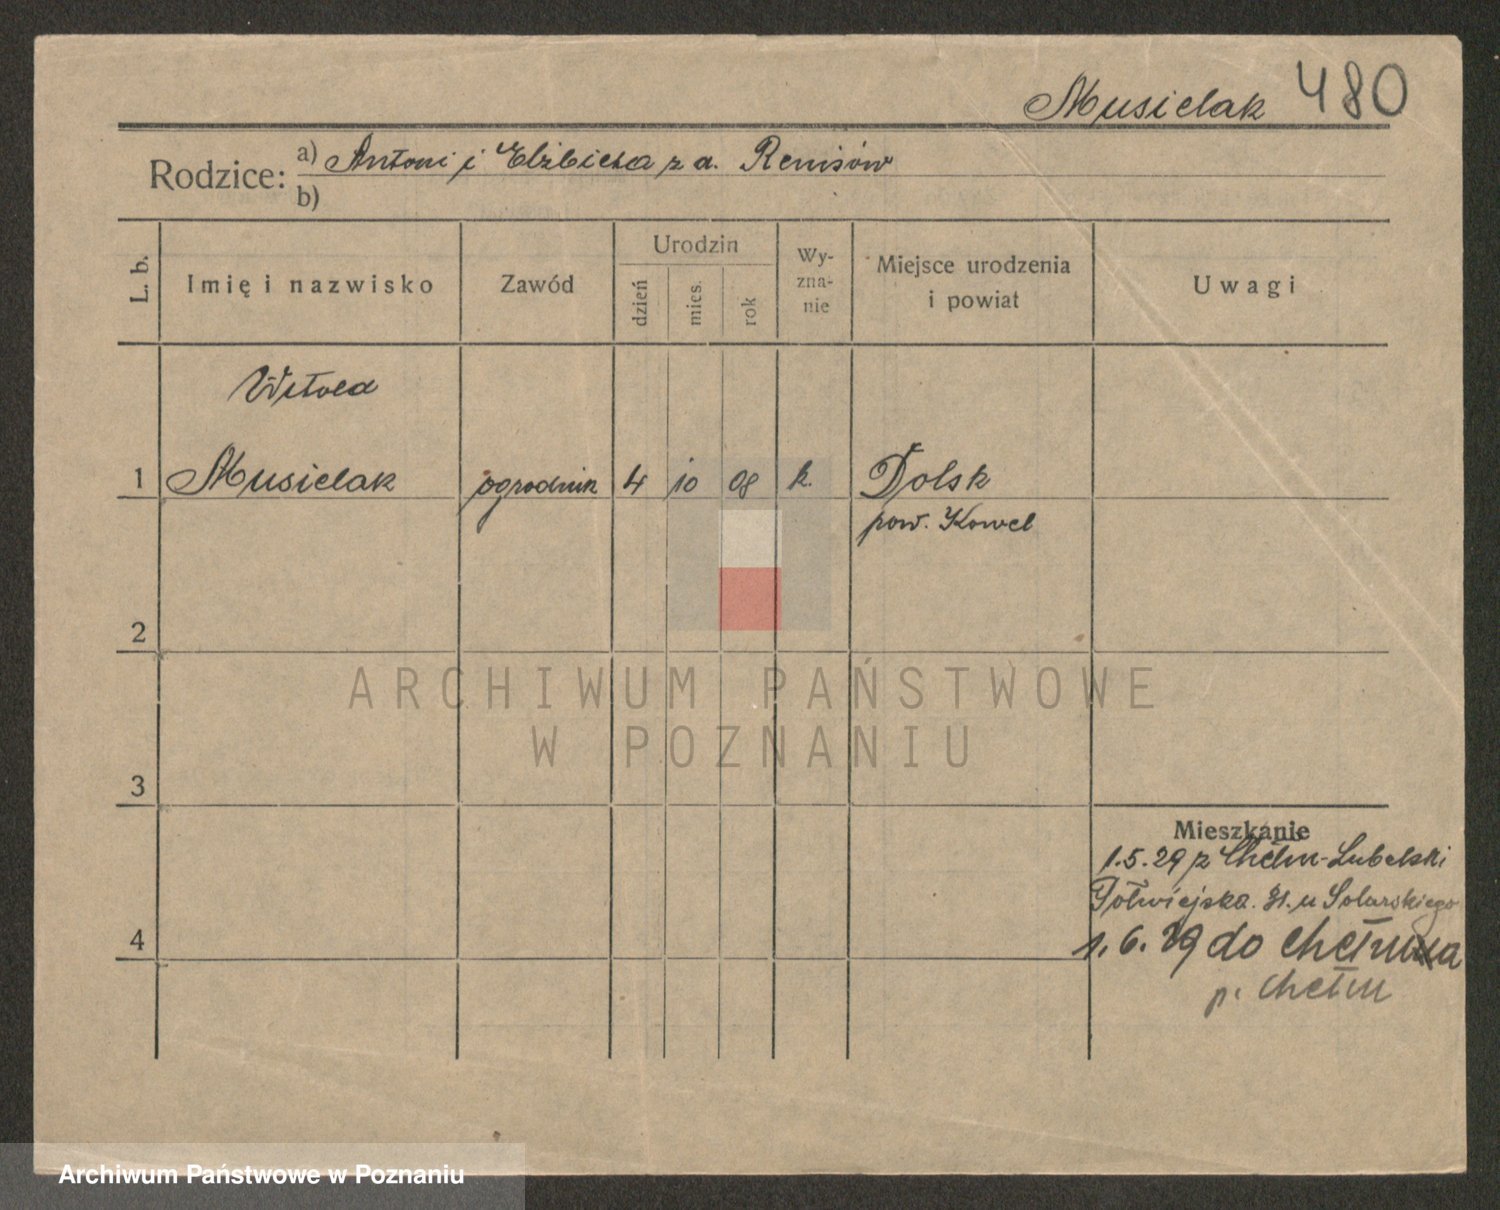 Musielak 480
Rodzice: a) Antoni i Elżbieta z d. Remisów
b)
L. b. Imię i nazwisko Zawód Urodzin dzień mies. rok Wy-zna-nie Miejsce urodzenia i powiat Uwagi
Witold
1 Musielak ogrodnik 4 10 08 k. Dolsk
pow. Kowel
2
ARCHIWUM PAŃSTWOWE
W POZNANIU
3
Mieszkanie
1.5.29 z Chełm-Lubelski
Półwiejska 31. u Solarskiego
4
1.6.29 do Chełma
p. Chełm
Archiwum Państwowe w Poznaniu